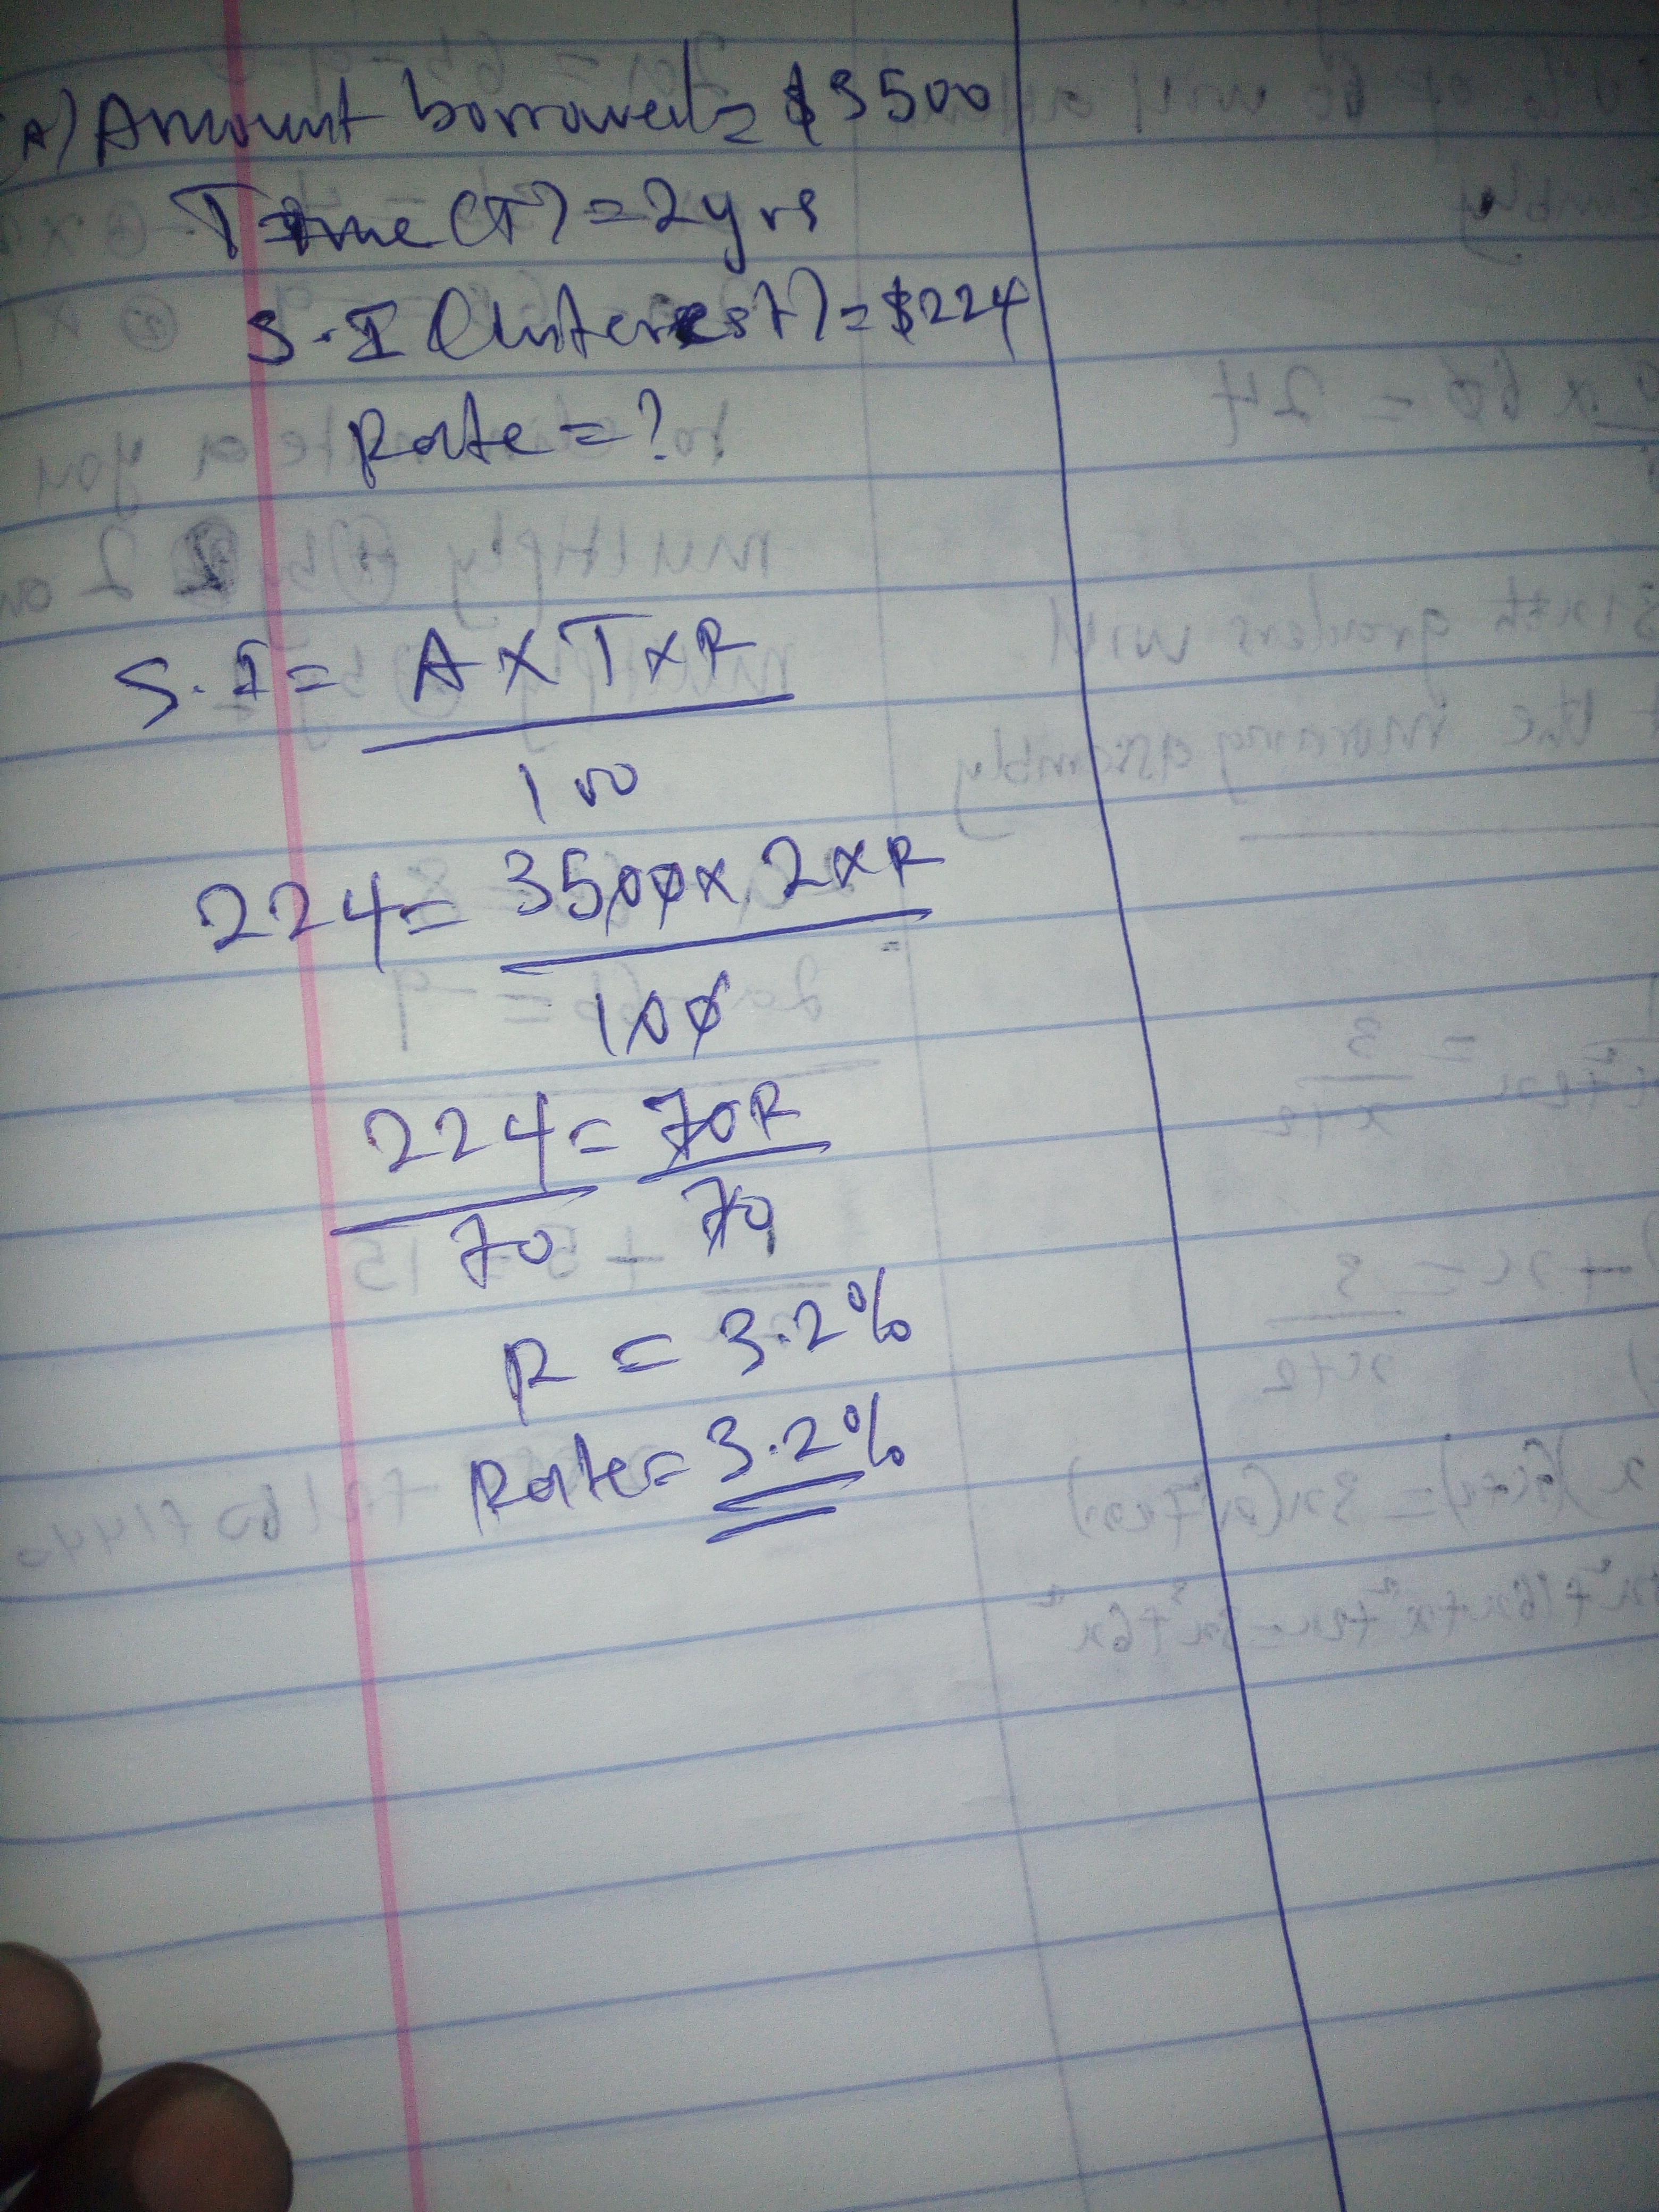 A) Amount borrowed = $3500
Time (T) = 2yrs
S.I (Interest) = $224
Rate = ?
S.I = A x T x R
100
224 = 3500 x 2 x R
100
224 = 70R
70 70
R = 3.2%
Rate = 3.2%